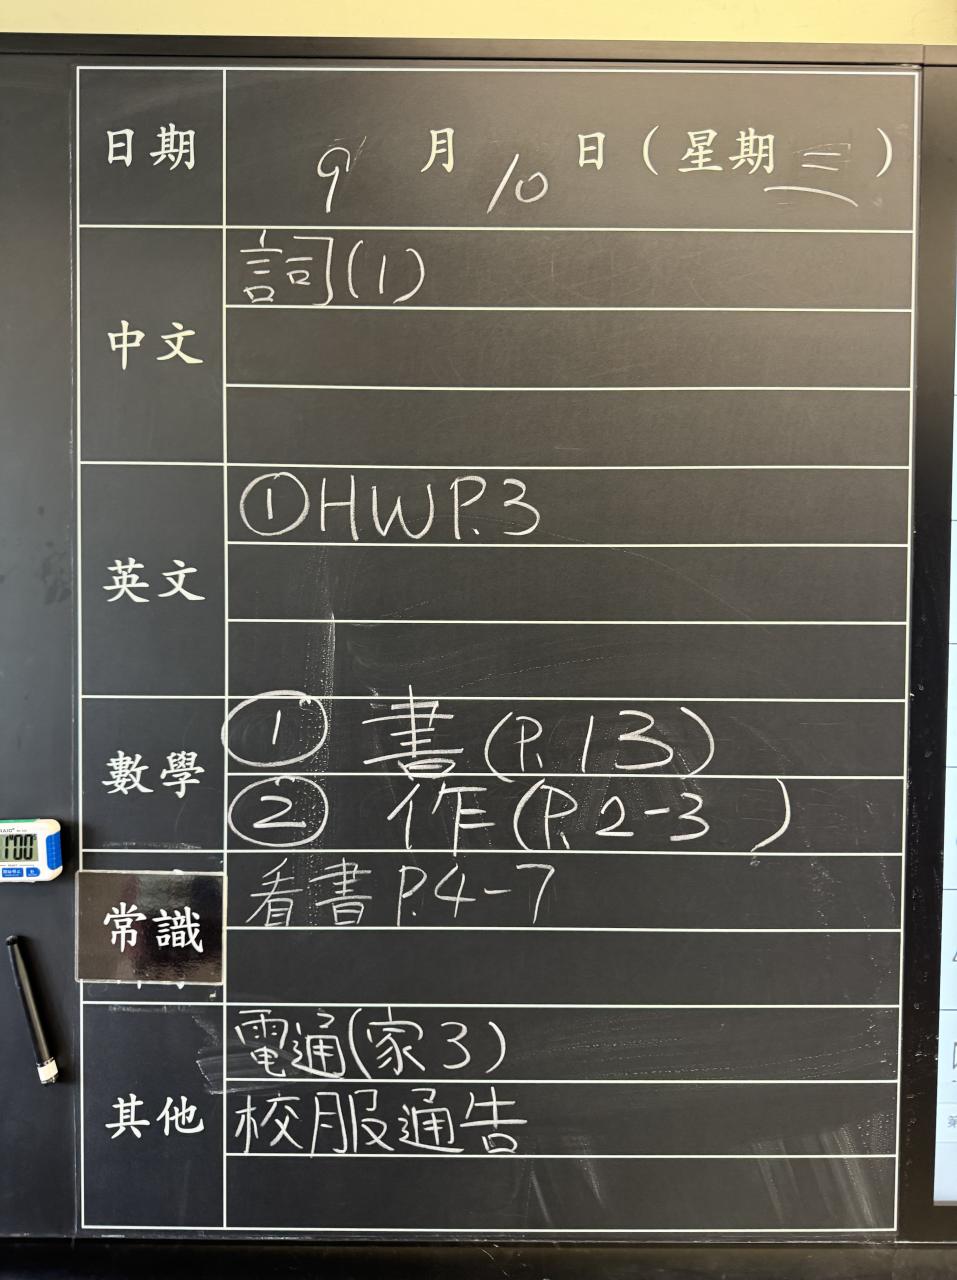 日期 9月10日(星期三)
中文 詞(1)
英文 ①HW P.3
數學 ① 書(P.13)
② 作(P.2-3)
常識 看書 P.4-7
其他 電通(家3)
校服通告
1'00